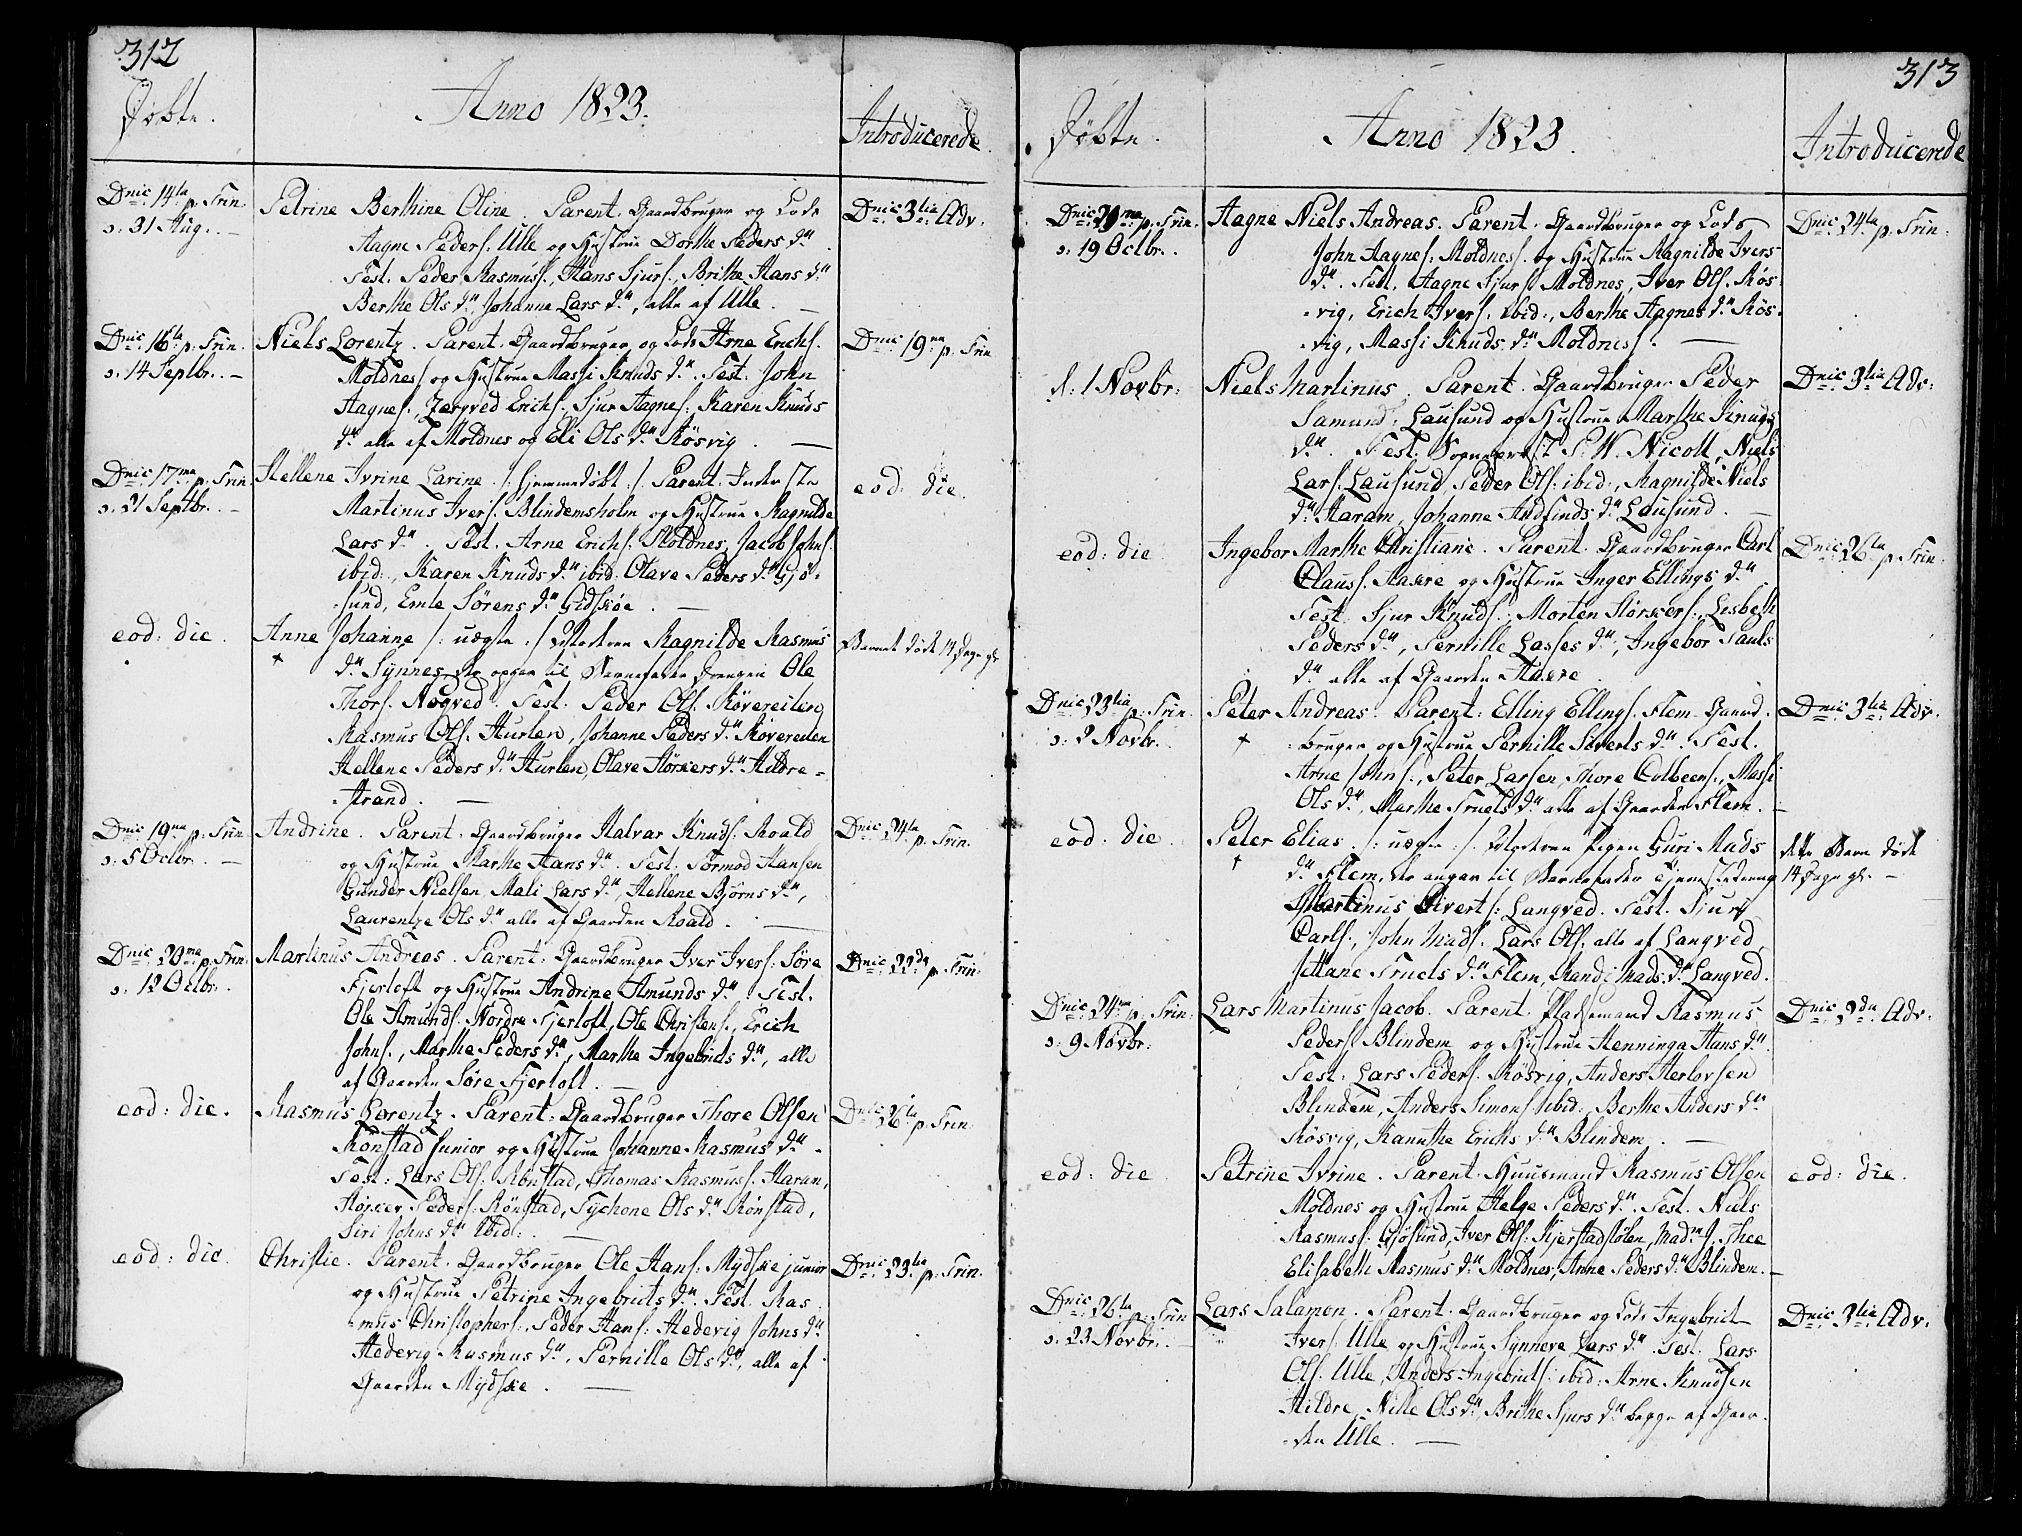 312
Døbte.
Anno 1823.
Introducerede
Dnic 14ta p. Trin.
d. 31 Aug. —
Petrine Berthine Oline. Parent. Gaardbruger og Lods
Aagne Peders. Ulle og Hustrue Dorthe Peders dr.
Test. Peder Rasmuss., Hans Sjurs., Brithe Hans dr
Berthe Ols dr. Johanne Lars dr, alle af Ulle. —
Dnic 3tia Adv.
Dnic 16ta p. Trin.
d. 14 Septbr. —
Niels Lorentz. Parent. Gaardbruger og Lods Arne Erichs.
Moldness og Hustrue Massi Knuds dr. Test. John
Aagnes., Zergved Erichs., Sjur Aagnes. Karen Knuds
dr. alle af Moldnes og Eli Ols dr. Røsvig. —
Dnic 19na p. Trin
Dnic 17ma p. Trin
d. 21 Septbr. —
Hellene Ivrine Larine /: hjemmedøbt :/ Parent. Inderste
Martinus Ivers. Blindemsholm og Hustrue Ragnilde
Lars dr. Test. Arne Erichs. Moldnes, Jacob Johns.
ibid:, Karen Knuds dr. ibid. Olave Peders dr. Gjø-
-sund, Emle Sørens dr. Gidskøe. —
eod: die.
eod: die.
Anne Johanne /: uægte :/ Ragnilde Rasmus
dr. Synnes, der opgav til Barnefader Drengen Ole
Thors. Nøgved. Test. Peder Ols. Røvereiten
Rasmus Ols. Hurlen, Johanne Peders dr. Røvereiten
Hellene Peders dr. Hurlen, Olave Størkers dr. Hildre-
-strand. —
Barnet døde 14 Dage gl.
Dnic 19na p. Trin
d. 5 Octbr. —
Andrine. Parent. Gaardbruger Halvar Knuds. Roald
og Hustrue Marthe Hans dr. Test. Tormod Hansen
Gunder Nielsen, Mali Lars dr. Hellene Bjørns dr,
Laurentze Ols dr. alle af Gaarden Roald. —
Dnic 24ta p. Trin.
Dnic 20ma p. Trin.
d. 12 Octbr.
Martinus Andreas. Parent. Gaardbruger Iver Ivers. Søre
Fjertoft og Hustrue Andrine Amunds dr. Test.
Ole Amunds. Nordre Fjertoft, Ole Christens., Erich
Johns., Marthe Peders dr, Marthe Ingebrits dr, alle
af Gaarden Søre Fjertoft. —
Dnic 22da p. Trin.
eod: die.
Rasmus Lorentz. Parent. Gaardbruger Thore Olsen
Rønstad junior og Hustrue Johanne Rasmus dr.
Test: Lars Ols. Rønstad, Thomas Rasmuss. Haram,
Størker Peders. Rønstad, Tychone Ols dr. Rønstad,
Siri Johns dr. ibid: —
Dnic 26ta p. Trin.
eod: die.
Christie. Parent. Gaardbruger Ole Hans. Mydskie junior
og Hustrue Petrine Ingebrits dr. Test. Ras-
-mus Christophers., Peder Hans. Hedevig Johns dr.
Hedevig Rasmus dr. Pernille Ols dr, alle af
Gaarden Mydskie. —
Dnic 23tia p. Trin.
313
Døbte.
Anno 1823.
Introducerede
Dnic 20ma p. Trin.
d. 19 Octbr.
Aagne Niels Andreas. Parent. Gaardbruger og Lods
John Aagnes. Moldness. og Hustrue Ragnilde Ivers
dr. Test. Aagne Sjurs Moldnes, Iver Ols. Røs-
-vig, Erich Ivers. ibid:, Berthe Aagnes dr. Røs-
-vig, Massi Knuds dr. Moldness. —
Dnic 24ta p. Trin.
d: 1 Novbr.
Niels Martinus. Parent. Gaardbruger Peder
Samund. Lausund og Hustrue Marthe Knuds
dr. Test. Sogneprest P. W. Nicoll, Niels
Lars. Lausund Peder Ols. ibid:, Ragnilde Niels
dr. Haram, Johanne Andfinds dr. Lausund. —
Dnic 3tia Adv:
eod: die
Ingebor Marthe Christiane. Parent. Gaardbruger Carl
Clauss. Haxre og Hustrue Inger Ellings dr.
Test. Sjur Knuds., Morten Størkers., Lisbeth
Peders dr, Pernille Lasses dr, Ingebor Pauls
dr. alle af Gaarden Haxre.
Dnic 26ta p. Trin.
Dnic 23tia p. Trin.
d. 2 Novbr.
Peter Andreas. Parent: Elling Ellings. Flem Gaard-
-bruger og Hustrue Pernille Siverts dr. Test.
Arne Johns., Peter Larsen, Thore Colbeens., Massi
Ols dr, Marthe Truels dr. alle af Gaarden Flem. —
Dnic 3tia Adv.
eod: die.
Peter Elias. /: uægte :/. Pigen Guri Mads
dr. Flem, der angav til Barnefader Tjenestedreng
Martinus Siverts. Langved. Test. Sjur
Carls., John Mads. Lars Ols. alle af Langved,
Hane Truels dr. Flem, Randi Mads dr. Langved.
dette Barn døde
14 Dage gl. —
Dnic 24ta p. Trin.
d. 9 Novbr.
Lars Martinus Jacob. Parent. Pladsemand Rasmus
Peders. Blindem og Hustrue Henninga Hans dr.
Test. Lars Peders. Røsvig, Anders Herlovsen
Blindem, Anders Simons. ibid:, Berthe Anders dr.
Røsvig, Kanuthe Erichs dr. Blindem. —
Dnic 2da Adv.
eod: die
Petrine Ivrine. Parent. Huusmand Rasmus Olsen
Moldnes og Hustrue Helge Peders dr. Test. Niels
Rasmuss. Gjøsund, Iver Ols. Kjerstadstølen, Madme J. Thee
Elisabeth Rasmus dr. Moldnes, Anne Peders dr. Blindem. —
eod: die.
Dnic 26ta p. Trin
d. 23 Novbr. —
Lars Salamon. Parent. Gaardbruger og Lods Ingebrit
Ivers. Ulle og Hustrue Synneve Lars dr. Test. Lars
Ols. Ulle, Anders Ingebrits. ibid: Arne Knudsen
Hildre, Nille Ols dr, Brithe Sjurs dr. begge af Gaar-
-den Ulle. —
Dnic 3tia Adv.